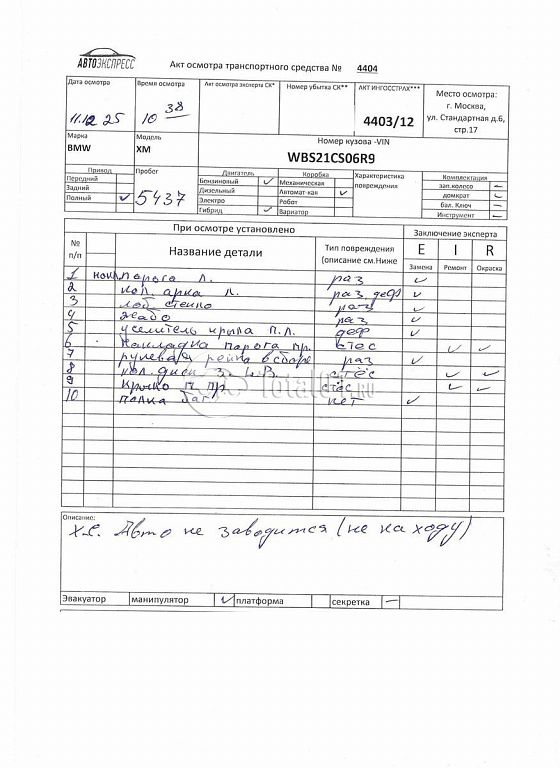 АВТОЭКСПРЕСС
Акт осмотра транспортного средства № 4404
Дата осмотра
11.12 25
Время осмотра
10 38
Акт осмотра эксперта СК*
Номер убытка СК**
АКТ ИНГОССТРАХ***
4403/12
Место осмотра:
г. Москва,
ул. Стандартная д.6,
стр.17
Марка
BMW
Модель
XM
Номер кузова -VIN
WBS21CS06R9
Привод
Передний
Задний
Полный ✓
Пробег
5437
Двигатель
Бензиновый ✓
Дизельный
Электро
Гибрид ✓
Коробка
Механическая
Автомат-кая ✓
Робот
Вариатор
Характеристика
повреждения
Комплектация
зап.колесо —
домкрат —
бал. Ключ —
Инструмент —
При осмотре установлено
Заключение эксперта
№
п/п
Название детали
Тип повреждения
(описание см.Ниже
E
I
R
Замена
Ремонт
Окраска
1 накл. порога л. раз ✓
2 кол. арка л. раз, деф ✓
3 лоб стекло раз ✓
4 жабо раз ✓
5 уселитель крыла п.л. деф ✓
6 накладка порога пр. стёс ✓ ✓
7 рулевая рейка всборе раз ✓
8 кол. диск з. L.B. стёс ✓ ✓
9 крыло п пр. стёс ✓ ✓
10 полка баг. нет ✓
Total01.ru
Описание:
Х.С. Авто не заводится (не на ходу)
Эвакуатор
манипулятор ✓
платформа
секретка —